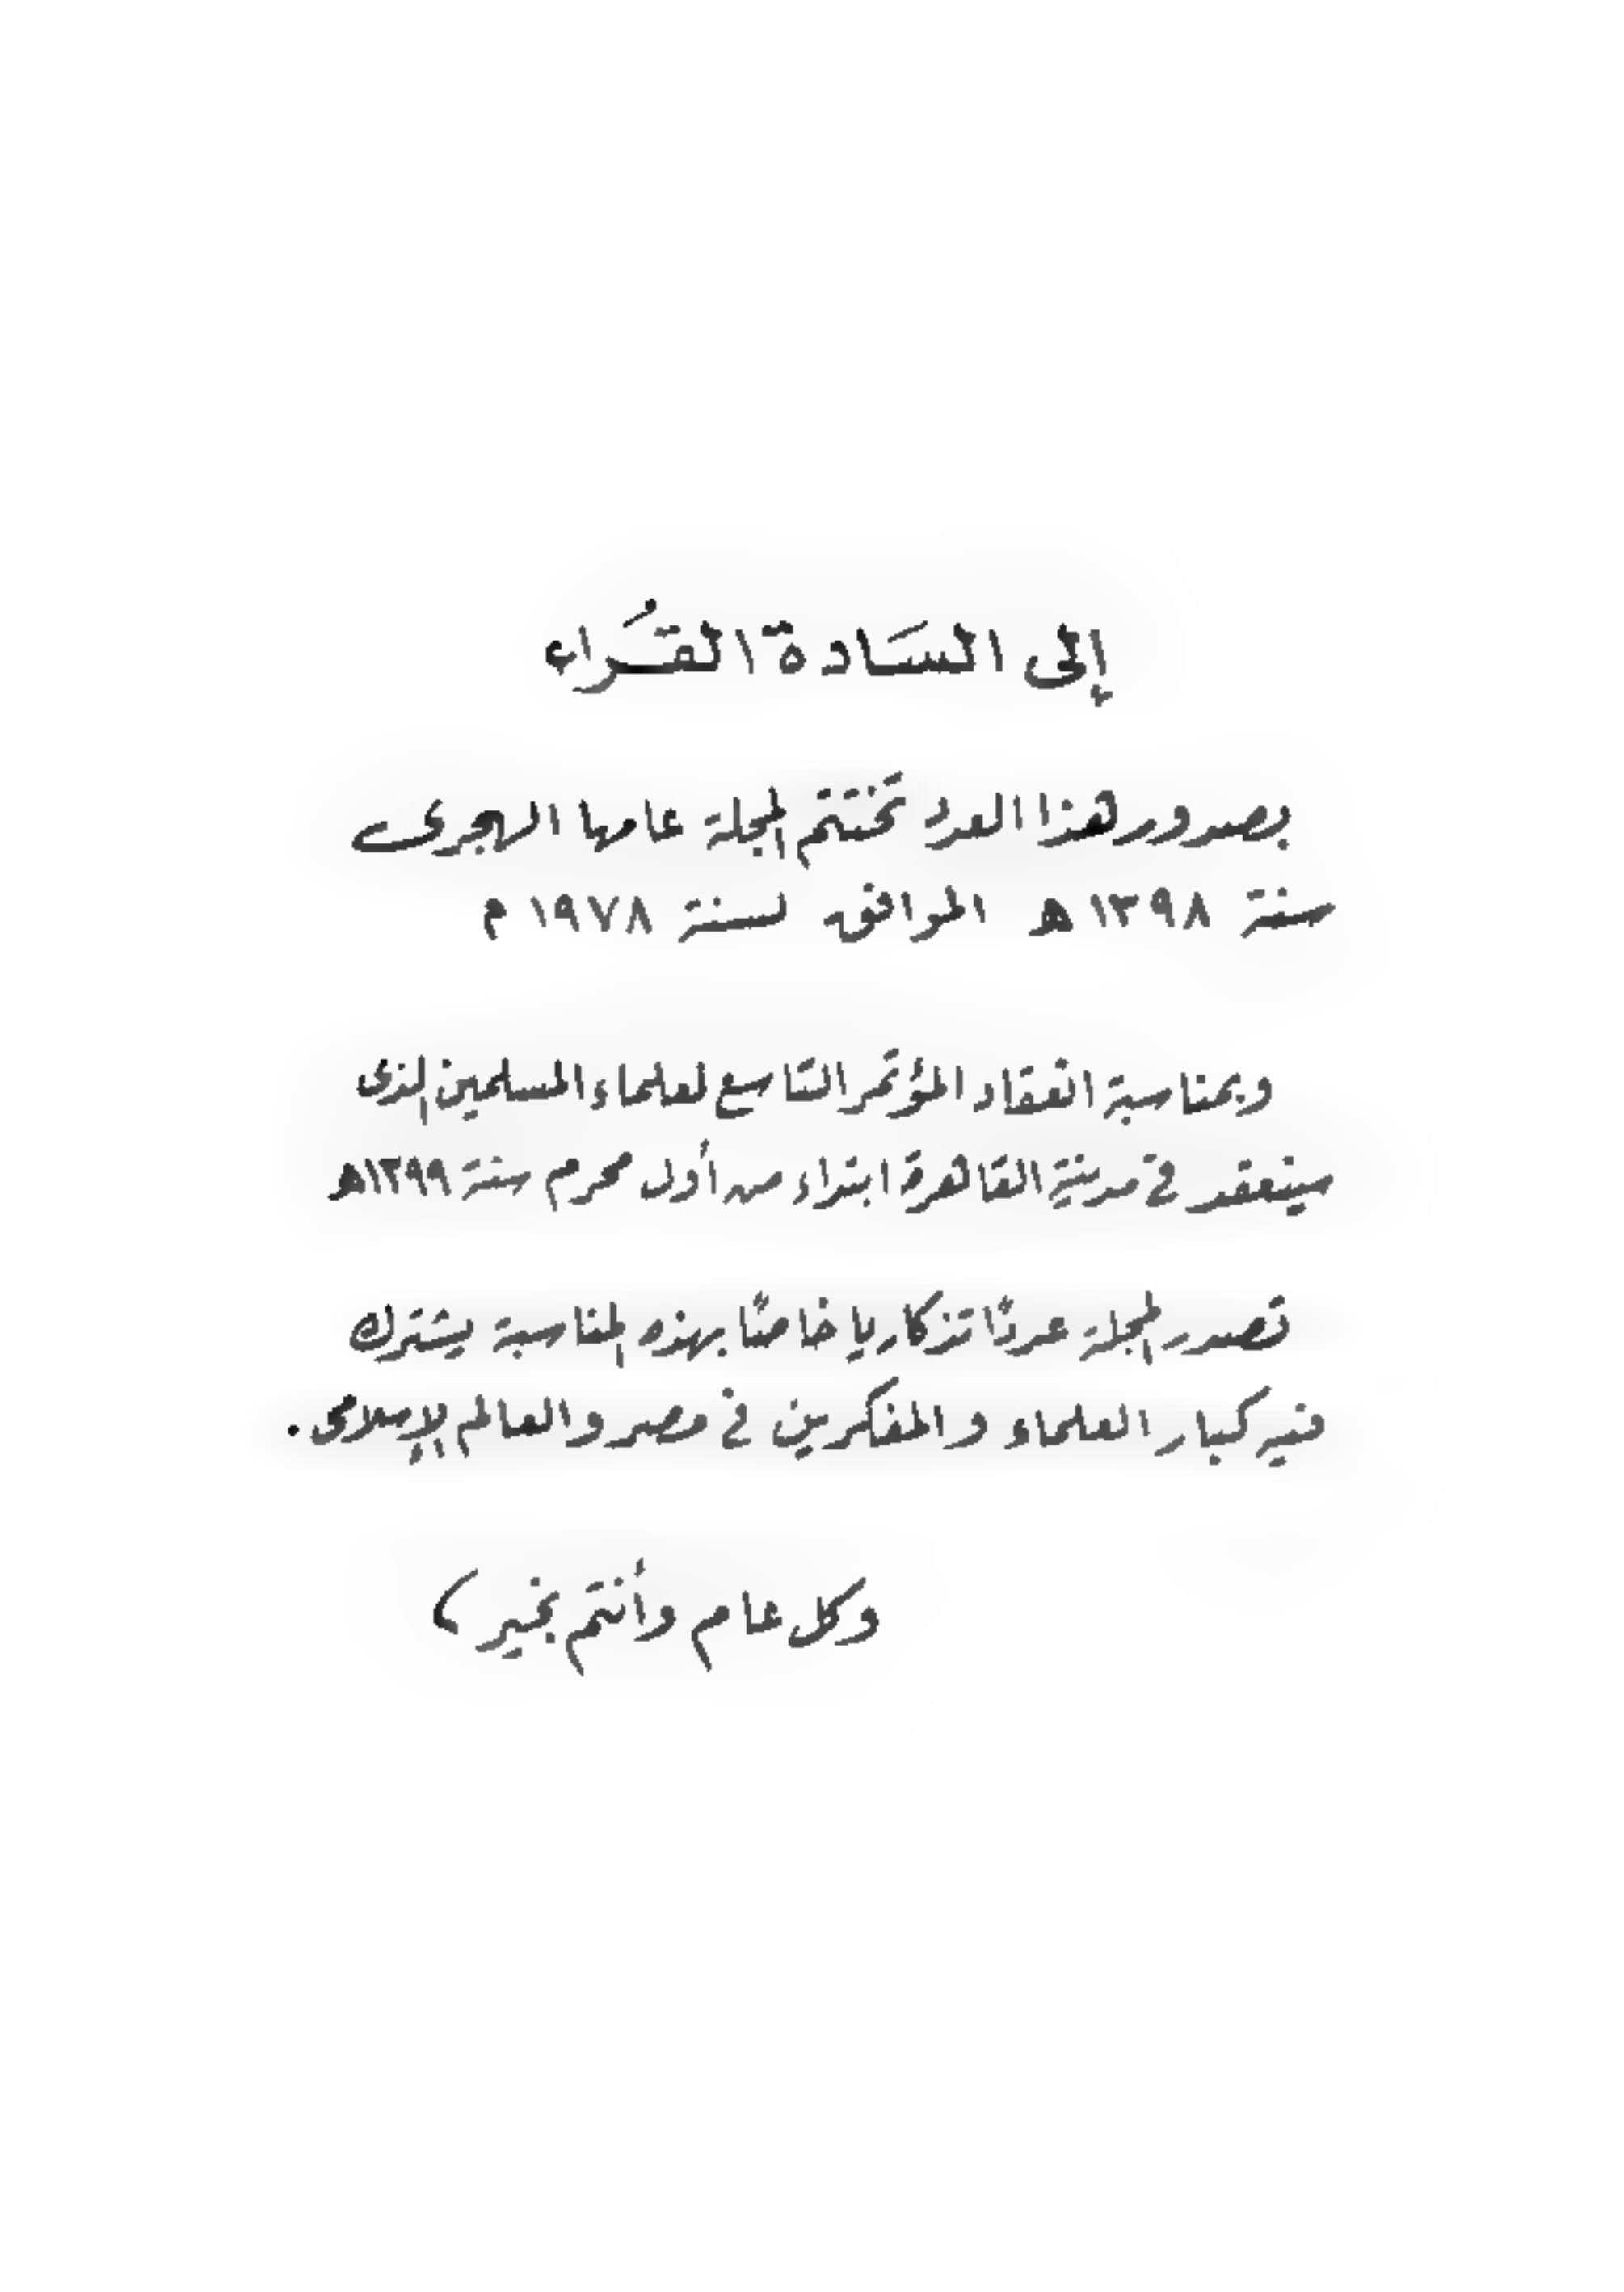 إلى السَادة القُرَاء
بصدور هذا العدد تختتم المجلة عامها الهجرى
سنة ١٣٩٨ هـ الموافق لسنة ١٩٧٨ م
وبمناسبة انعقاد المؤتمر التاسع لعلماء المسلمين الذى
سينعقد فى مدينة القاهرة ابتداء من أول محرم سنة ١٣٩٩هـ
تصدر المجلة عددًا تذكاريا خاصًا بهذه المناسبة يشترك
فيه كبار العلماء والمفكرين فى مصر والعالم الإسلامى .
وكل عام وأنتم بخير